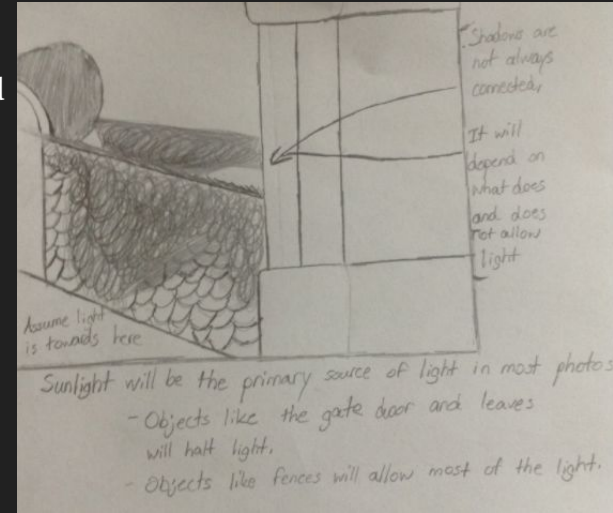 Shadows are
not always
connected,
It will
depend on
what does
and does
not allow
light
Assume light
is towards here
Sunlight will be the primary source of light in most photos
- Objects like the gate door and leaves
will halt light.
- Objects like fences will allow most of the light.